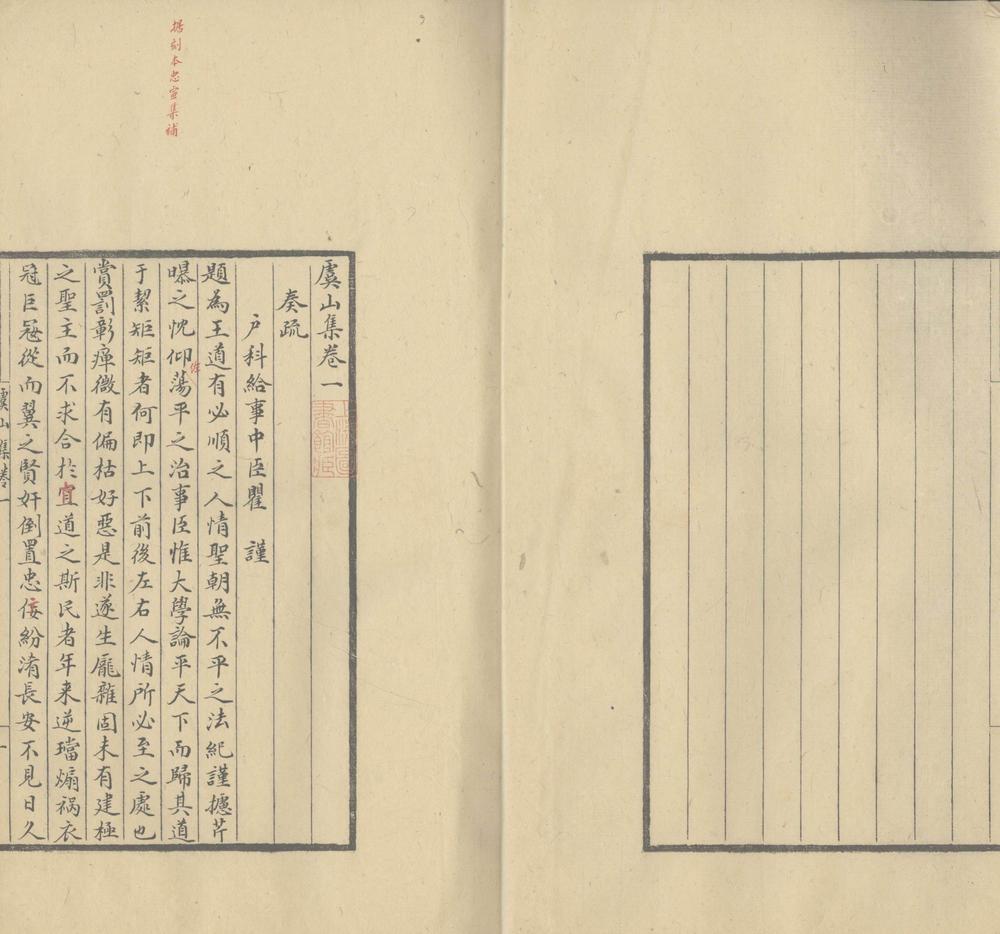 據刻本忠宣集補
虞山集卷一
奏疏
戶科給事中臣瞿　謹
題為王道有必順之人情聖朝無不平之法紀謹攄芹
曝之忱仰蕩平之治事臣惟大學論平天下而歸其道
于絜矩矩者何即上下前後左右人情所必至之處也
賞罰彰癉微有偏枯好惡是非遂生龎雜固未有建極
之聖主而不求合於直道之斯民者年来逆璫煽禍衣
冠巨寇從而翼之賢奸倒置忠佞紛淆長安不見日久
虞山集卷一
一